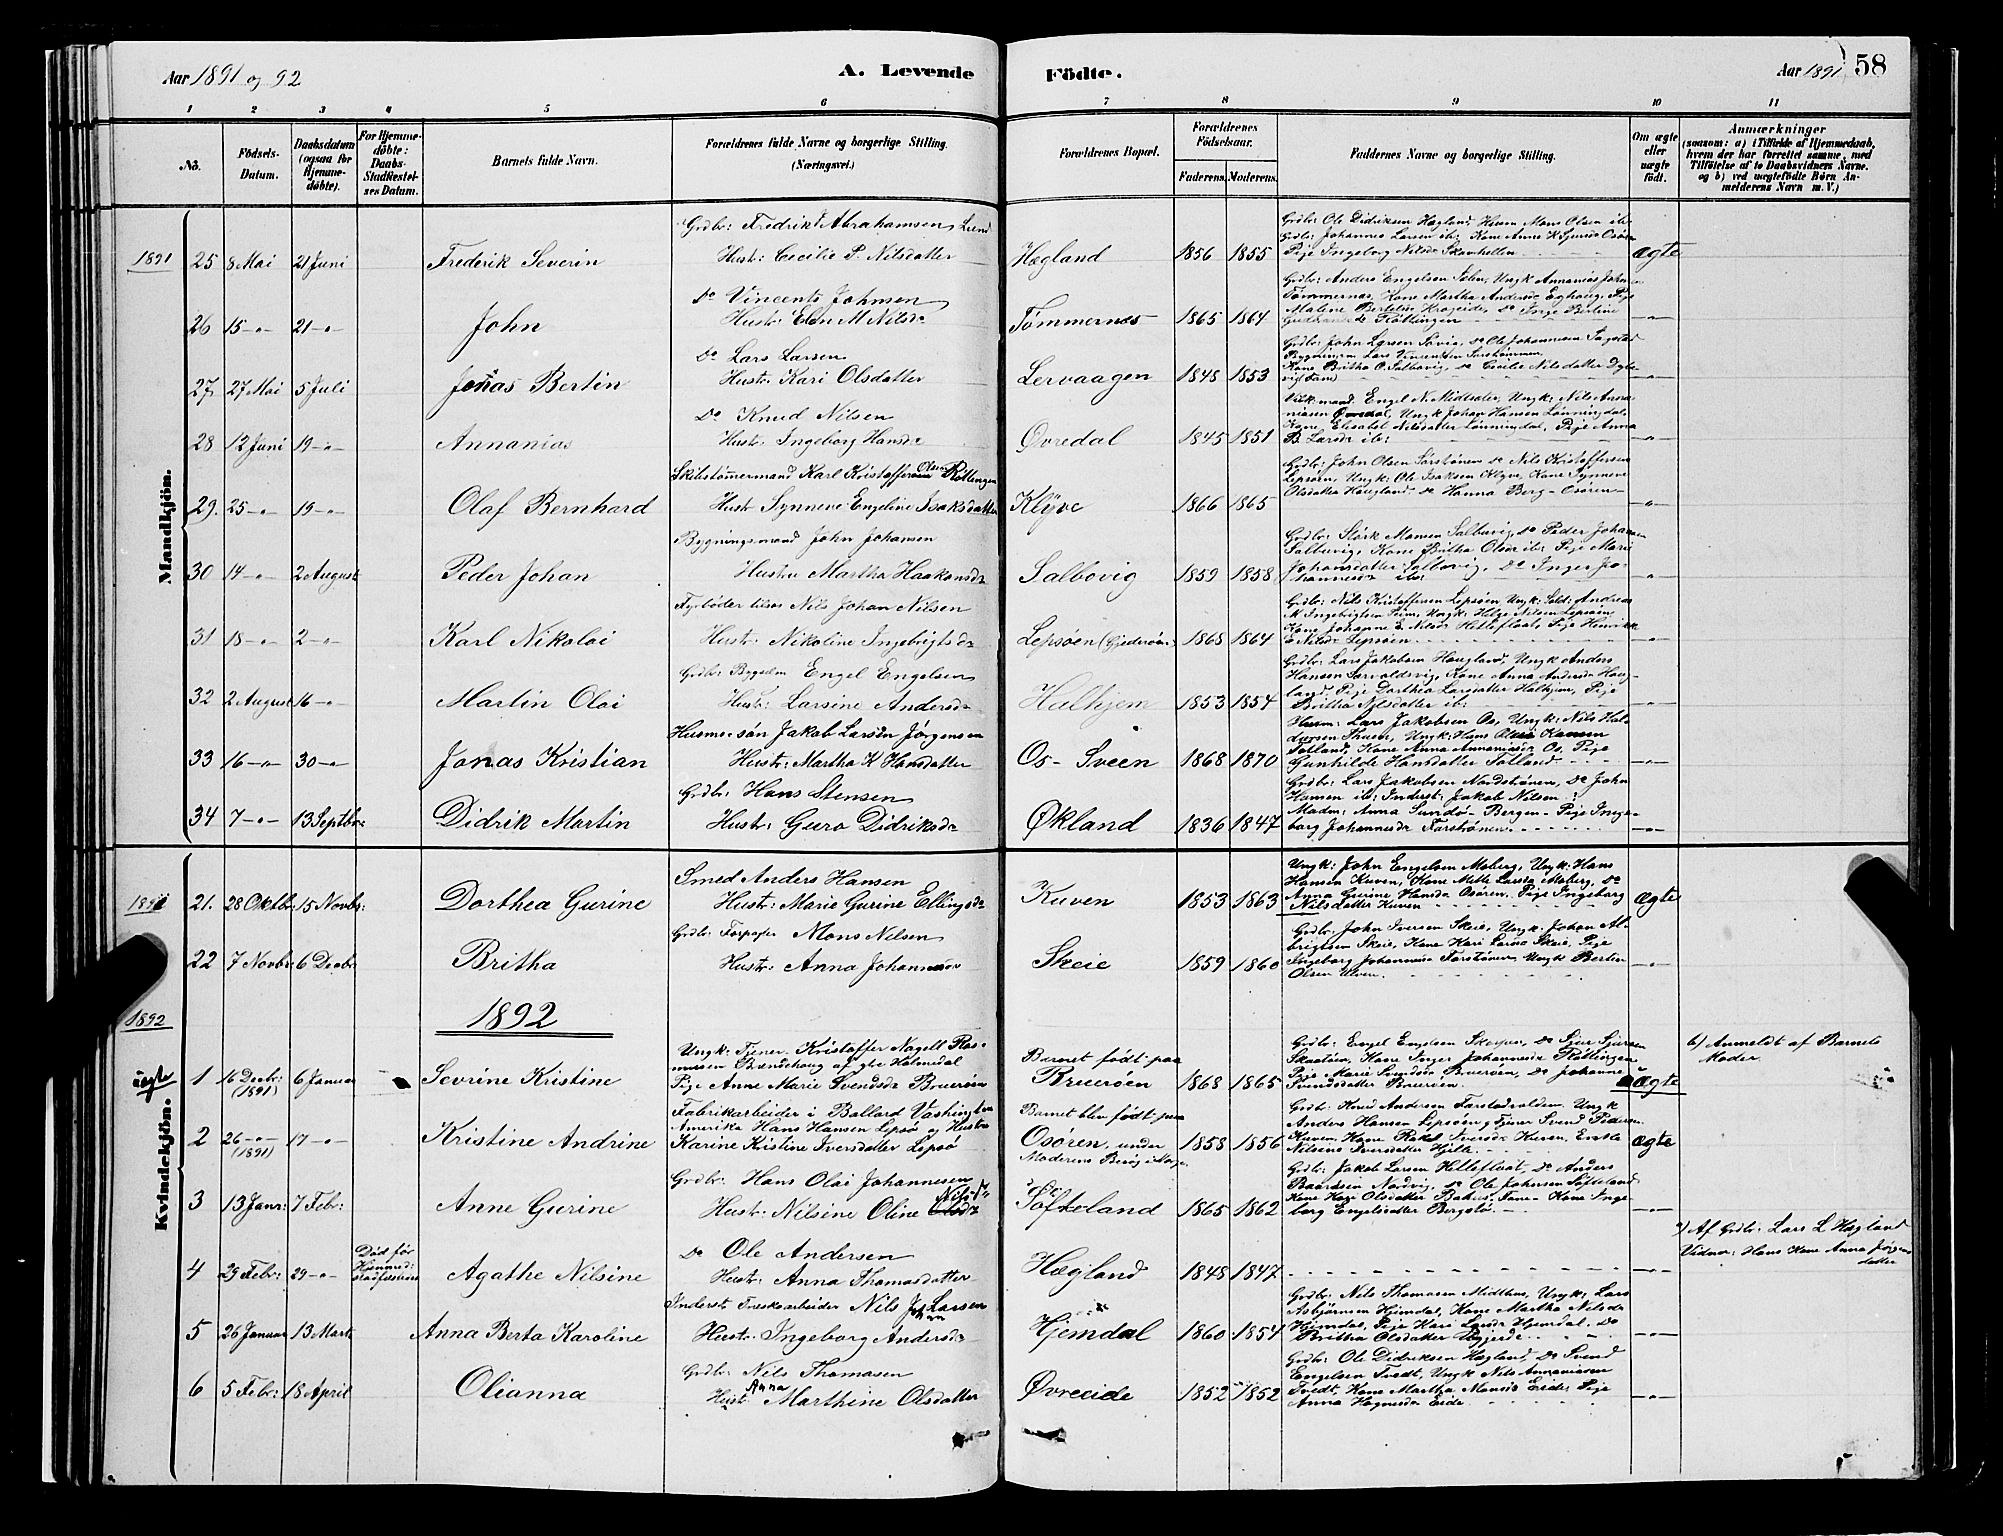 Aar 1891 og 92
A. Levende
Födte.
Aar 1891
58
1 2 3 4 5 6 7 8 9 10 11
No.
Födsels-Datum.
Daabsdatum (ogsaa for Hjemme-döbte).
For Hjemme-döbte: Daabs-Stadfæstel-ses Datum.
Barnets fulde Navn.
Forældrenes fulde Navne og borgerlige Stilling. (Næringsvei.)
Forældrenes Bopæl.
Forældrenes Födselsaar.
Faderens. Moderens.
Faddernes Navne og borgerlige Stilling.
Om ægte eller uægte födt.
Anmærkninger (saasom: a) i Tilfælde af Hjemmedaab, hvem der har forrettet samme, med Tilföielse af to Daabsvidners Navne. og b) ved uægtefödte Börn An-melderens Navn m. V.)
Mandkjön.
1891 25 8 Mai 21 Juni Frederik Severin
Grdbr: Fredrik Abrahamsen Lund
Hustr: Cecilie P. Nilsdatter
Hægland 1856 1855
Grdbr: Ole Didriksen Hægland, Husm Mons Olsen ib:
Grdbr: Johannes Larsen ib: Kone Anne K Sjursdr Osören
Pige Ingeborg Nilsdr
ægte
26 15 -"- 21 -"- John
Do Vincents Johnsen
Hustr: Elen M Nilsdr
Tømmernes 1865 1864
Grdbr: Anders Engelsen Sælen, Ungk Annanias John-
Tømmernes, Kone Martha Andersdr Pige
Malene Bertelsdr Do Inge Bertine
-"-
27 27 Mai 5 Juli Jonas Bertin
Do Lars Larsen
Hustr: Kari Olsdatter
Lervaagen 1848 1853
Grdbr: John Larsen Do Ole Johannesen
Lars Vincentsen
Kone Britha O. Salbovig, do Cecilie Nilsdatter
vig Fane
-"-
28 12 Juni 19 -"- Annanias
Do Knud Nilsen
Hustr: Ingeborg Hansdr
Øvredal 1845 1851
Engel N. Midtsæter, Ungk: Nils Anna-
niasen Øvredal, Ungk Johan Hansen Lønningdal.
Kone Elisabet Nilsdatter Lønningdal, Pige Anna
B. Larsdr ib:
-"-
29. 25 -"- 19 -"- Olaf Bernhard
Skibstömermand Karl Kristoffersen Olsen Røttingen
Hustr Synneve Engeline Isaksdatter
Klyve 1866 1865
Grdbr: John Olsen Sörströnen Do Nils Kristoffersen
Lepsøen, Ungk: Ole Isaksen Klyve, Kone Synneve
Olsdatter Haugland Do Hanna Berg - Osøren
-"-
30 14 -"- 2 August Peder Johan
Bygningsmand John Johansen
Hustru Martha Haakonsdr
Salbovig 1859 1858
Grdbr: Störk Monsen Salbuvig, Do Peder Johannesen
Salbuvig, Kone Britha Olsdr ib: Pige Marie
Johansdatter Salbovig, Do Inger Jo-
hannesdr ib:
-"-
31 18 -"- 2 -"- Karl Nikolai
Fyrbøder Nils Johan Nilsen
Hustr: Nikoline Ingebrigtsdr
Lepsøen (Gjederöen) 1868 1864
Grdbr: Nils Kristoffersen Lepsøen Ungk: Sold: Andreas
M Ingebrigtsen Seim, Ungk: Helge Nilsen Lepsøen
Kone Johanne E. Nilsdr Hetlefloat, Pige Henrikke
E Nilsdr Lepsøen
-"-
32 2 August 16 -"- Martin Olai
Grdbr Bygselm Engel Engelsen
Hustr: Larsine Andersdr
Halhjem 1853 1854
Grdbr: Lars Jakobsen Haugland, Ungk Anders
Hansen Kone Anna Andersdr Haug-
land. Pige Dorthea Larsdatter Halhjem, Pige
Britha Nilsdatter ib:
-"-
33 16 -"- 30 -"- Jonas Kristian
Husms. søn Jakob Larsen Jørgensen
Hustr: Martha K Hansdatter
Os- Sveen 1868 1870
Husm: Lars Jakobsen Os, Ungk: Nils Hal-
dorsen Thuen, Ungk: Hans Hansen
Søtland, Kone Anna Annaniasdr Os, Pige
Gunhilde Hansdatter Søtland
-"-
34 7 -"- 13 Septbr: Didrik Martin
Grdbr: Hans Stensen
Hustr: Guro Didriksdr
Økland 1836 1847
Grdbr: Lars Jakobsen Nordströnen, Do John
Hansen ib: Inderst: Jakob Nilsen
Madm: Anna Sundø- Bergen - Pige Inge-
borg Johannesdr Førstrønen
-"-
Kvindekjön.
1891 21. 28 Oktbr: 15 Novbr: Dorthea Gurine
Smed Anders Hansen
Hustr: Marie Gurine Ellingsdr
Kuven 1853 1863
Ungk: John Engelsen Moberg, Ungk: Hans
Hansen Kuven, Kone Mette Larsdr Moberg, Do
Anna Gurine Hansdr Osøren, Pige Ingeborg
Nilsdatter Kuven
ægte
22 7 Novbr: 6 Decbr Britha
Grdbr: Mons Nilsen
Hustr: Anna Johannesdr
Skeie 1859 1860
Grdbr: John Iversen Skeie, Ungk: Johan Al-
brigtsen Skeie, Kone Kari Larsdr Skeie, Pige
Ingeborg Johannesdr Førstrønen, Ungk Berten
Olsen Ulven.
-"-
1892
1892
uægte
1 16 Decbr: (1891) 6 Januar Sevrine Kristine
Ungk: Tjener. Kristoffer Nagell Ras-
mussen Brendhaug af gbr Holmedal
Pige Anne Marie Svendsdr Bruerøen
Barnet født paa
Bruerøen 1868 1865
Grdbr: Engel Engelsen Do Sjur Sjursen
Kone Inger Johannesdr Røttingen
Pige Marie Svendsdr Bruerøen, Do Johanne
Svendsdatter Bruerøen.
uægte
b) Anmeldt af Barnets
Moder.
2 26 -"- (1891) 17 -"- Kristine Andrine
Fabrikarbeider i Ballard Vashington
Amerika Hans Hansen Lepsø og Hustru
Karine Kristine Iversdatter Lepsø
Barnet blev født paa
Osøren, under
Moderens Besøg i Norge. 1858 1856
Grdbr: Knud Andersen Ungk
Anders Hansen Lepsøen, Tjener Svend Pedersen
Kuven, Kone Rakel Iversdr Kuven, Enke
Nilsine Iversdatter Hjelle
ægte
3 13 Janr: 7 Febr: Anne Gurine
Grdbr: Hans Olai Johannesen
Hustr: Nilsine Oline Nilsdr
Søfteland 1865 1862
Grdbr: Jakob Larsen Hetlefloat, Do Anders
Nordvig, Do Ole Johnsen Søfteland
Kone Kari Olsdatter Fane- Kone Inge-
borg Engelsdatter
-"-
4 29 Febr: 29 -"- Død før Hjemmed: stadfæstelsen Agathe Nilsine
Do Ole Andersen
Hustr: Anna Thomasdatter
Hægland 1848 1847
-"-
Af Grdbr: Lars L Hægland
Vidner: Hans Kone Anna Jørgens
datter
5 26 Januar 13 Marts Anna Berta Karoline
Inderst Nils Johan Larsen
Hustr: Ingeborg Andersdr
Hjemdal 1860 1854
Grdbr: Nils Thomasen Midthus, Ungk: Lars
Asbjørnsen Hjemdal, Kone Martha Nilsdr
Hjemdal, Pige Kari Larsdr Hjemdal. Do
Britha Olsdatter
-"-
6 5 Febr: 18 April Olianna
Grdbr: Nils Thomasen
Hustr Anna Marthine Olsdatter
Øvreeide 1852 1852
Grdbr: Ole Didriksen Hægland, Do Svend
Engelsen Tvedt, Ungk Nils Annaniasen
Tvedt, Kone Martha Monsdr Eide, Pige
Anna Hagnesdr Eide
-"-